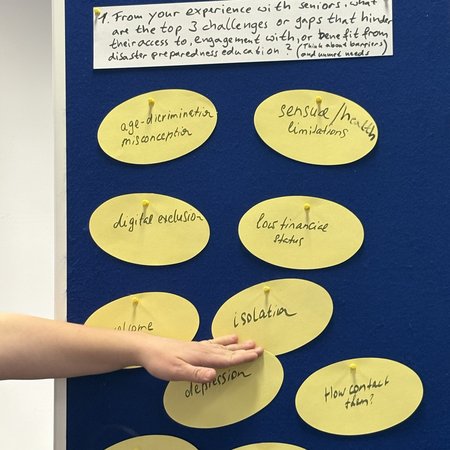 1. From your experience with seniors, what
are the top 3 challenges or gaps that hinder
their access to, engagement with, or benefit from
disaster preparedness education? (Think about barriers
and unmet needs)
age-dicrimination
misconception
sensual/health
limitations
digital exclusion
low financial
status
isolation
depression
How contact
them?